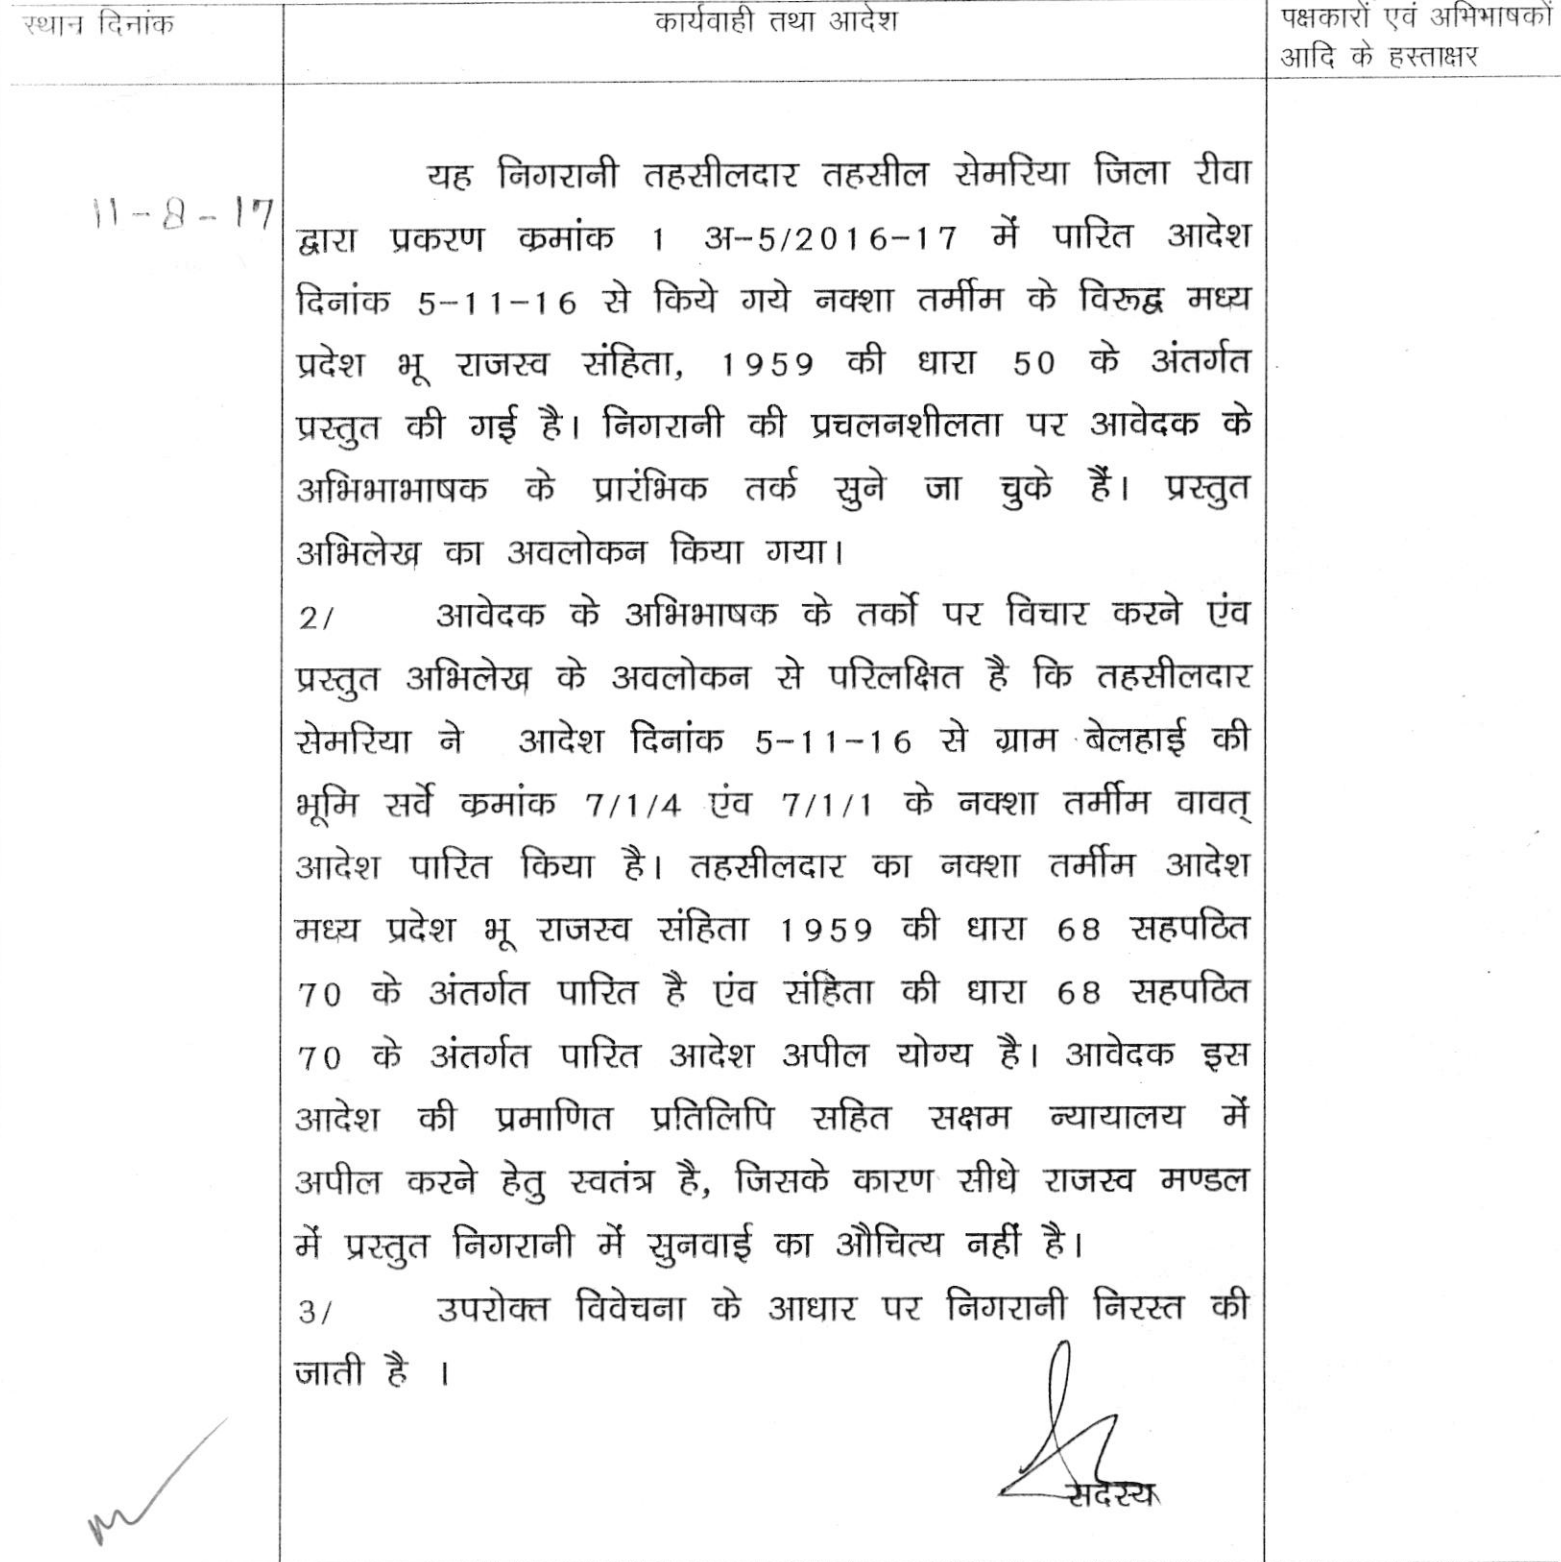 स्थान दिनांक
कार्यवाही तथा आदेश
पक्षकारों एवं अभिभाषकों
आदि के हस्ताक्षर
11-8-17
यह निगरानी तहसीलदार तहसील सेमरिया जिला रीवा
द्वारा प्रकरण क्रमांक 1 अ-5/2016-17 में पारित आदेश
दिनांक 5-11-16 से किये गये नक्शा तर्मीम के विरूद्व मध्य
प्रदेश भू राजस्व संहिता, 1959 की धारा 50 के अंतर्गत
प्रस्तुत की गई है। निगरानी की प्रचलनशीलता पर आवेदक के
अभिभाभाषक के प्रारंभिक तर्क सुने जा चुके हैं। प्रस्तुत
अभिलेख का अवलोकन किया गया।
2/ आवेदक के अभिभाषक के तर्को पर विचार करने एंव
प्रस्तुत अभिलेख के अवलोकन से परिलक्षित है कि तहसीलदार
सेमरिया ने आदेश दिनांक 5-11-16 से ग्राम बेलहाई की
भूमि सर्वे क्रमांक 7/1/4 एंव 7/1/1 के नक्शा तर्मीम वावत्
आदेश पारित किया है। तहसीलदार का नक्शा तर्मीम आदेश
मध्य प्रदेश भू राजस्व संहिता 1959 की धारा 68 सहपठित
70 के अंतर्गत पारित है एंव संहिता की धारा 68 सहपठित
70 के अंतर्गत पारित आदेश अपील योग्य है। आवेदक इस
आदेश की प्रमाणित प्रतिलिपि सहित सक्षम न्यायालय में
अपील करने हेतु स्वतंत्र है, जिसके कारण सीधे राजस्व मण्डल
में प्रस्तुत निगरानी में सुनवाई का औचित्य नहीं है।
3/ उपरोक्त विवेचना के आधार पर निगरानी निरस्त की
जाती है ।
सदस्य